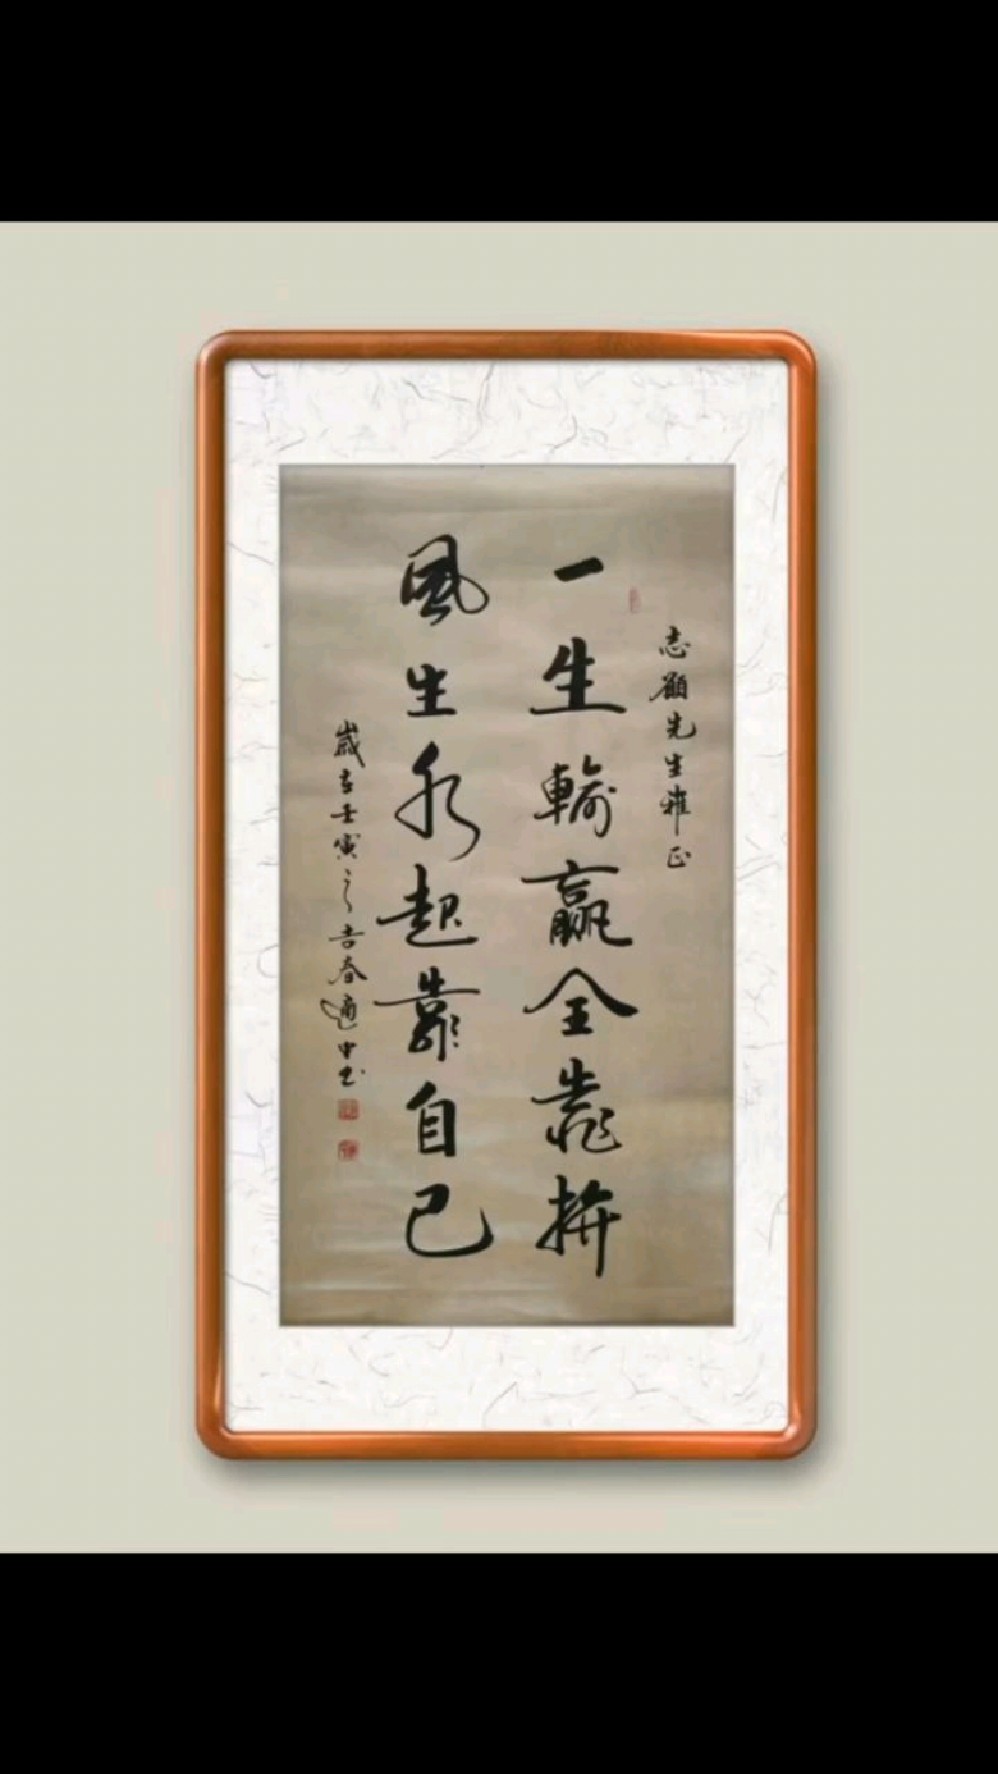 志顧先生雅正
一生輸贏全靠拚
風生水起靠自己
歲在壬寅之吉春適中书